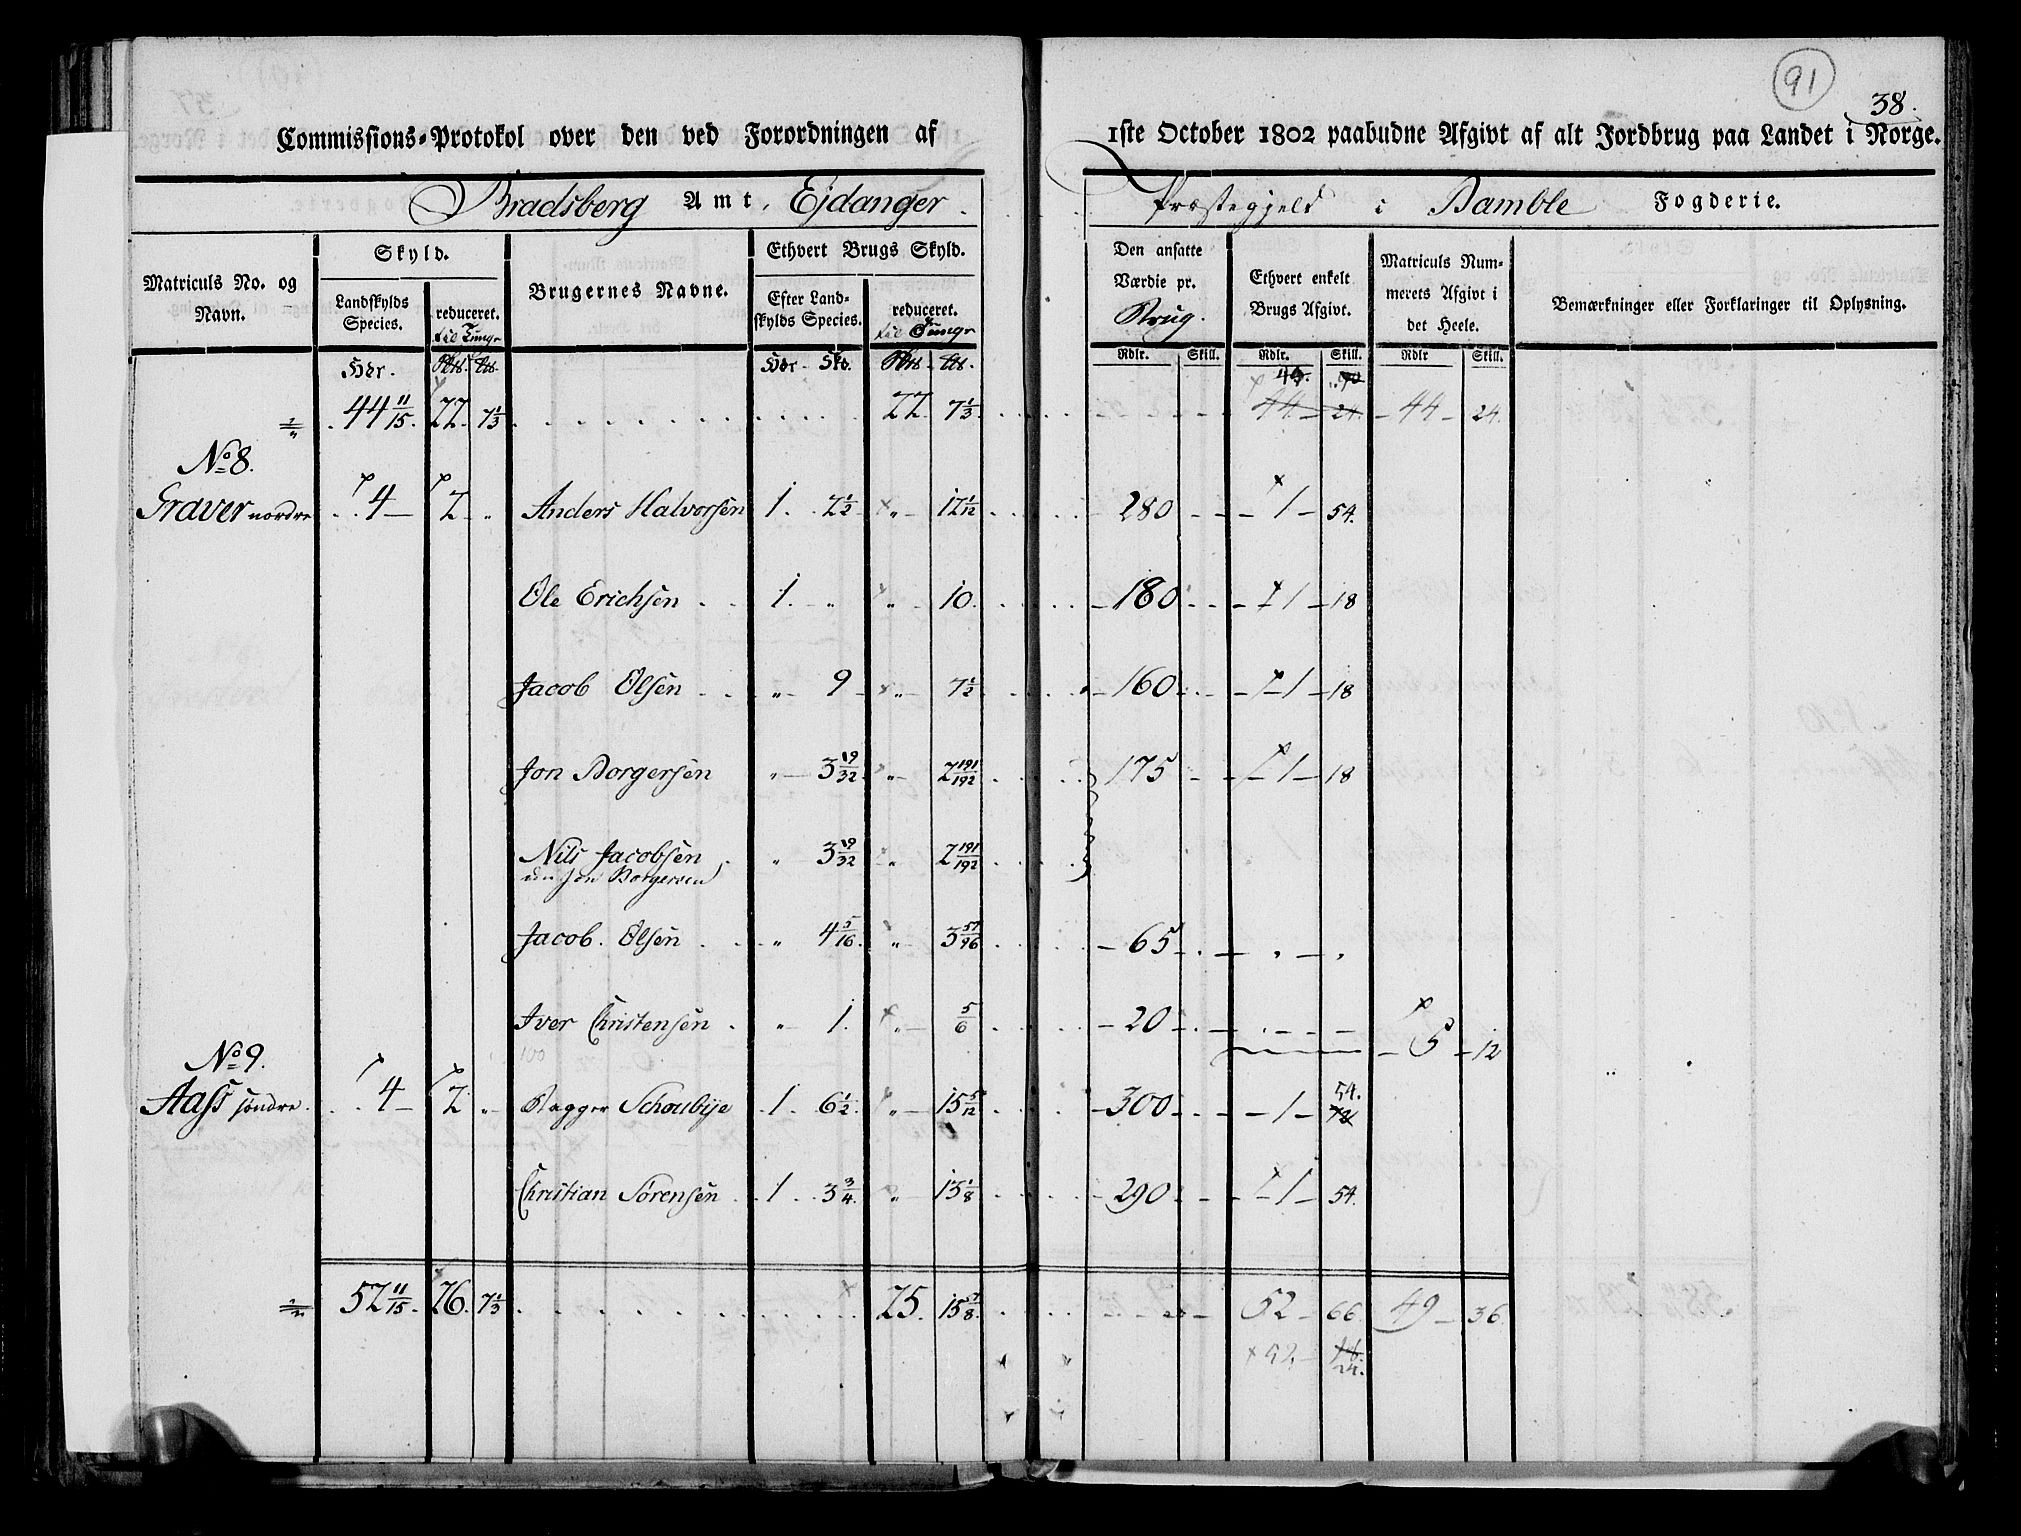 91
38.
Commissions-Protokol over den ved Forordningen af 1ste October 1802 paabudne Afgivt af alt Jordbrug paa Landet i Norge.
Bradsberg Amt, Ejdanger Præstegjeld i Bamble Fogderie.
Matriculs No. og Navn.
Skyld.
Landskylds Species.
reduceret. til Tunge
Brugernes Navne.
Ethvert Brugs Skyld.
Efter Landskylds Species.
reduceret. til Tunge
Den ansatte Værdie pr. Brug.
Ethvert enkelt Brugs Afgivt.
Matriculs Nummerets Afgivt i det Heele.
Bemærkninger eller Forklaringer til Oplysning.
Rdlr. Skill. Rdlr. Skill. Rdlr Skill.
44 11/15. 22. 7 1/3 22. 7 1/3 44 24. 44 24.
No 8.
Graver nordre 4 2 „ Anders Halvorsen 1. 2 1/2 „ 12 1/12 280 1 54.
Ole Erichsen 1. „ „ 10. 180 1 18
Jacob Olsen „ 9 „ 7 1/2 160 1 18
Jon Borgersen „ 3 19/32 „ 2 191/192 175 1 18
Nils Jacobsen „ 3 19/32 „ 2 191/192
Jon Borgersen
Jacob Olsen „ 4 5/16 „ 3 57/96 65
Iver Christensen „ 1. „ 5/6 20
100
5 12
No 9.
Aass søndre. 4 2 „ Ragger Schoubye 1. 6 1/2 „ 15 5/12 300 1 54. 72
Christian Sørensen 1 3 3/4 „ 13 1/8 290 1 54.
52 11/15. 26. 7 1/3 25. 15 57/8 52 66. 49 36.
52. 24.